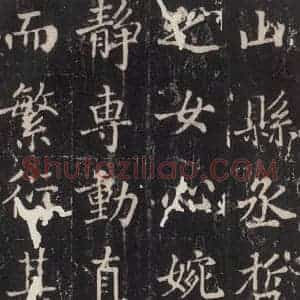 山縣丞哲
之女也婉
靜専動直
而繁衍其
Shufaziliao.COM